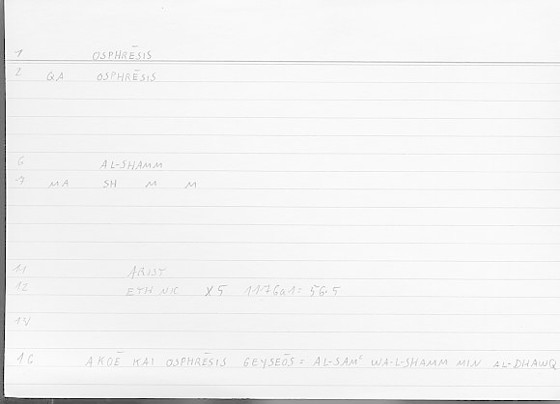 1 OSPHRĒSIS
2 QA OSPHRĒSIS
6 AL-SHAMM
7 MA SH M M
11 ARIST
12 ETH NIC X5 1176a1 = 565
13/
16 AKOĒ KAI OSPHRĒSIS GEYSEŌS = AL-SAMʿ WA-L-SHAMM MIN AL-DHAWQ